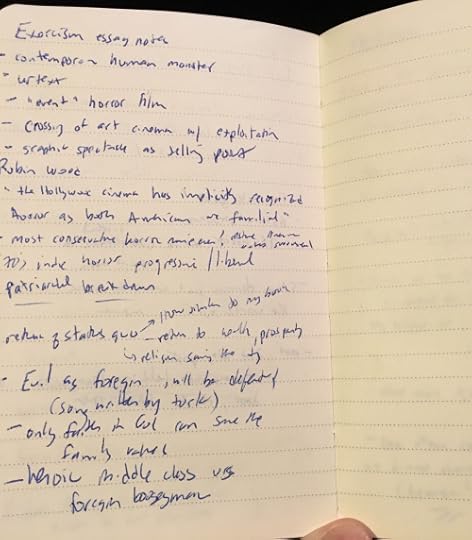 Exorcism essay notes
- contemporary human monster
" urtext
- "event" horror film
- Crossing of art cinema w/ exploitation
- graphic spectacle as selling point
Robin Wood
"the Hollywood cinema has implicitly recognized
Horror as both American and familial"
- most conservative horror movie ever!
70's indie horror progressive / liberal
patriarchal breakdown
how similar to my book
return of status quo - return to wealth, prosperity
religion saving the day
- Evil as foreign, will be defeated
(song written by
- only faith in God can save the
family
- heroic middle class vrs
foreign boogeyman